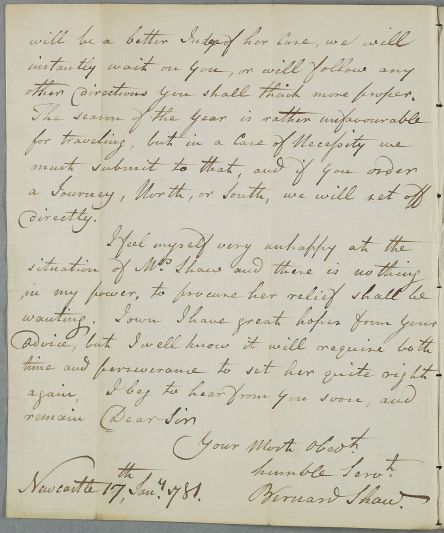 will be a better Judge of her Case, we will
instantly wait on you, or will follow any
other directions you shall think more proper.
The season of the year is rather unfavourable
for traveling, but in a Case of Necessity we
must submit to that, and if you order
a Journey, North, or South, we will set off
directly.
I feel myself very unhappy at the
situation of Mrs Shaw and there is nothing
in my power, to procure her relief shall be
wanting. I own I have great hopes from your
advice, but I well know it will require both
time and perseverance to set her quite right
again, I beg to hear from you soon, and
remain Dear Sir
Your Most Obedt.
humble Servt.
Newcastle 17th, Jany. 781.
Bernard Shaw.